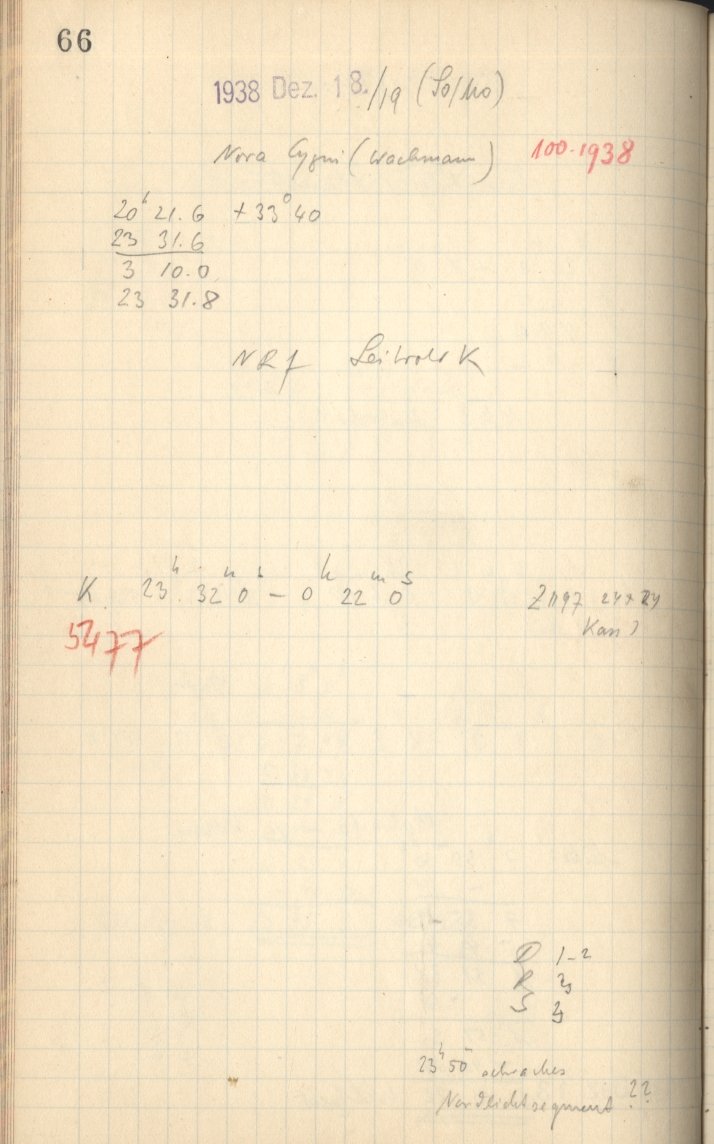 66
1938 Dez. 18./19 (So/Mo)
Nova Cygni (Wachmann) 100.1938
20ʰ 21.6 + 33° 40
23 31.6
3 10.0
23 31.8
K 23ʰ 32ᵐ 0ˢ – 0ʰ 22ᵐ 0ˢ
5477
24 x 24
D 1-2
R 3
S 3
23ʰ 50ᵐ schwaches
Nordlichtsegment ??